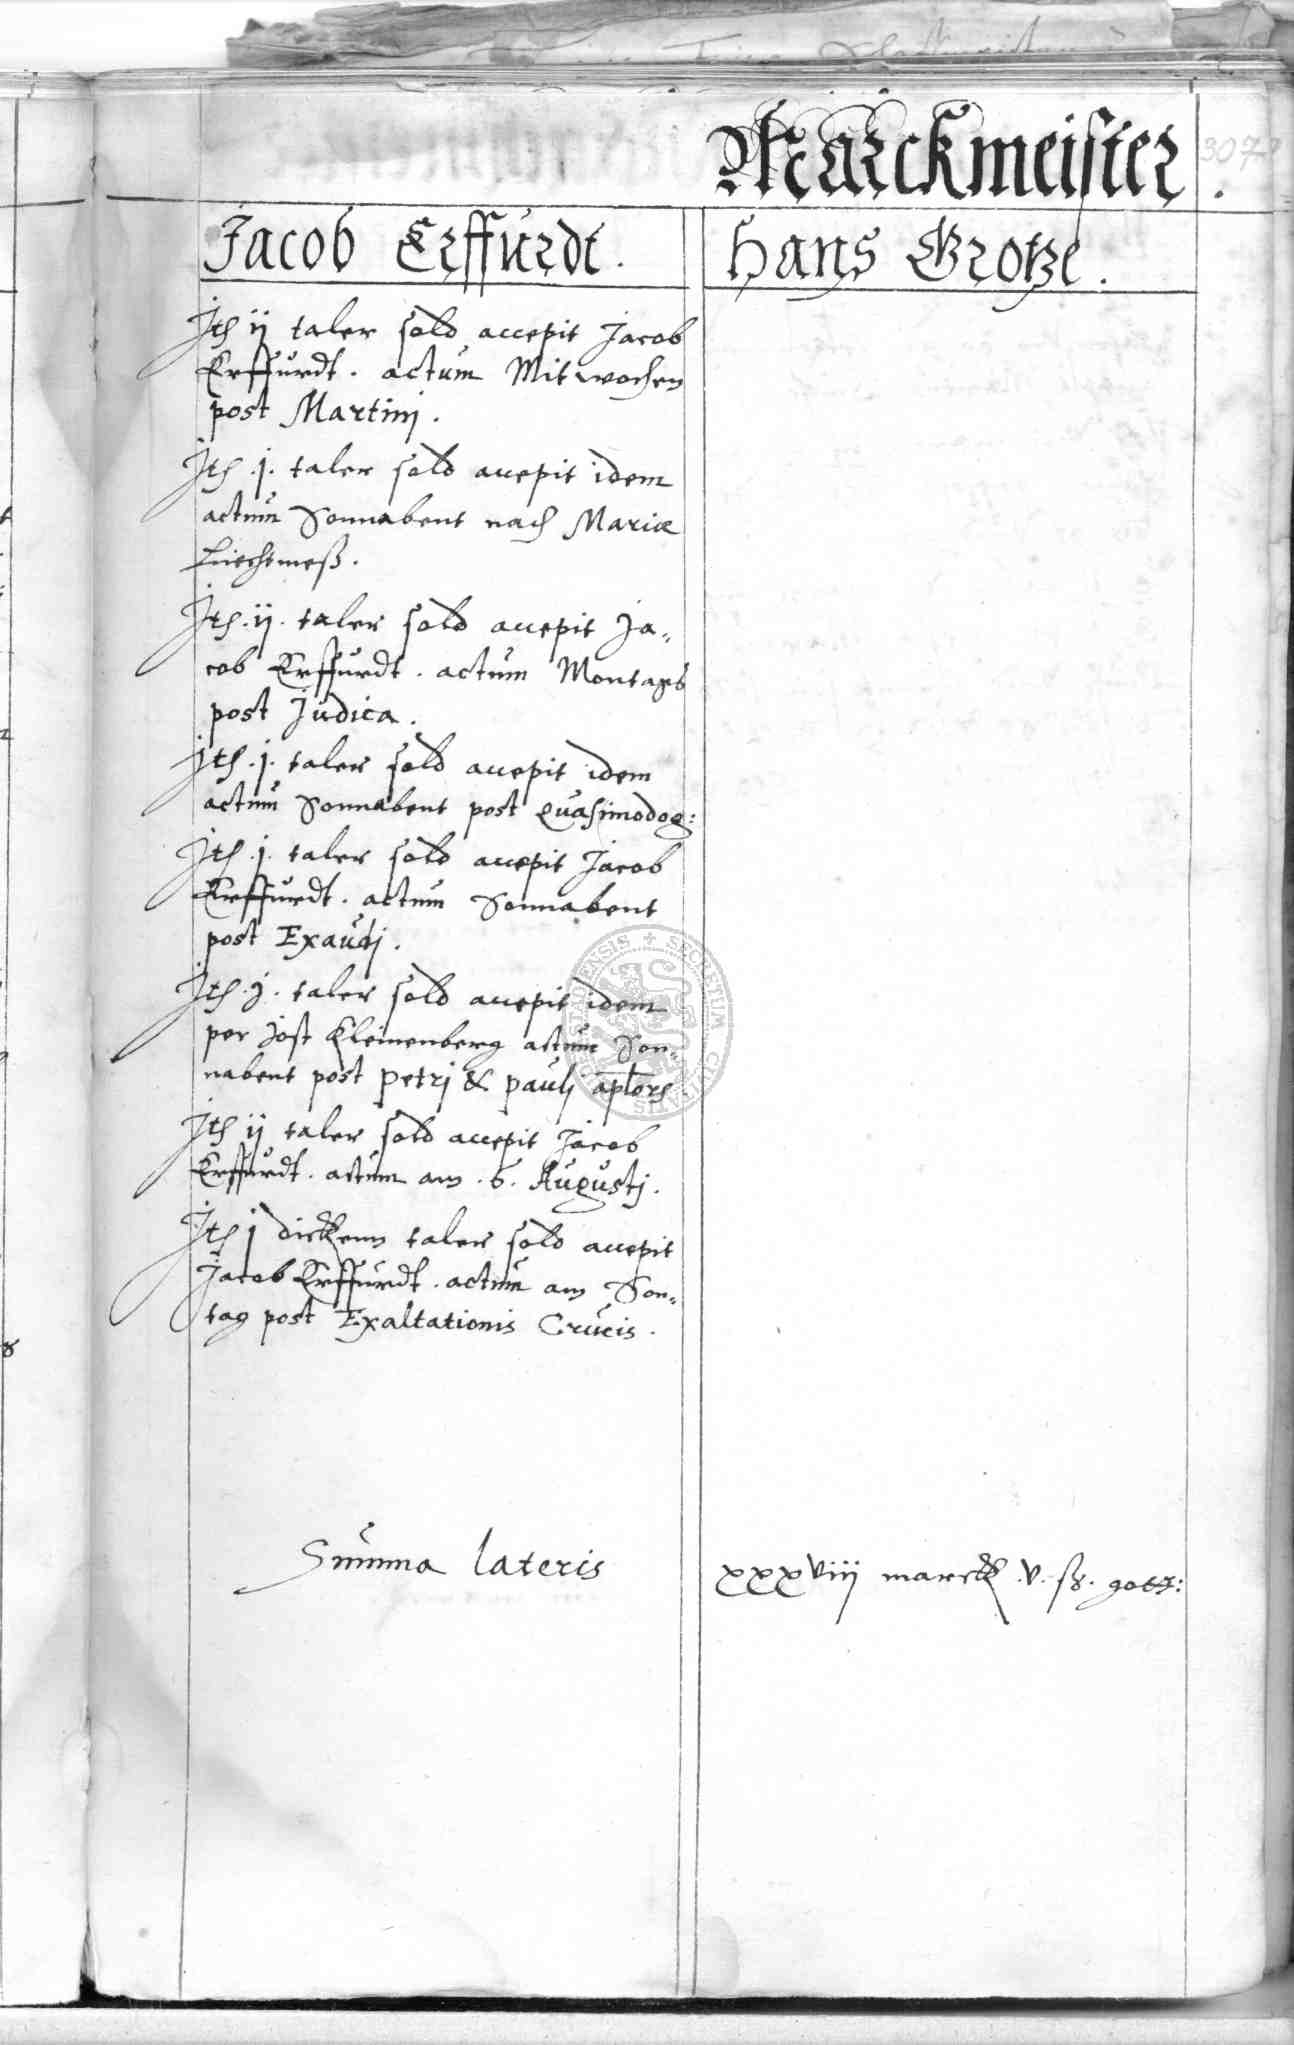 Marckmeister .
307
Jacob Erffurdt .
Hans Grotze .
Jtem ij taler sold accepit Jacob
Erffurdt . actum Mitwochen
post Martinj .
Jtem .j. taler sold accepit idem
actum Sonnabent nach Mariæ
Liechtmeß .
Jtem .ij. taler sold accepit Ja„
cob Erffurdt . actum Montags
post Judica .
Jtem .j. taler sold accepit idem
actum Sonnabent post Quasimodog:
Jtem .j. taler sold accepit Jacob
Erffurdt . actum Sonnabent
post Exaudj .
Jtem .j. taler sold accepit idem
per Jost Kleinenberg actum Son„
nabent post Petrj & Paulj aplors
Jtem ij taler sold accepit Jacob
Erffurdt . actum am .6. Augustj .
Jtem j dickenn taler sold accepit
Jacob Erffurdt . actum am Son„
tag post Exaltationis Crucis .
Summa lateris
xxxviij marck .v. ß. gott:
SECRETUM CIVITATIS